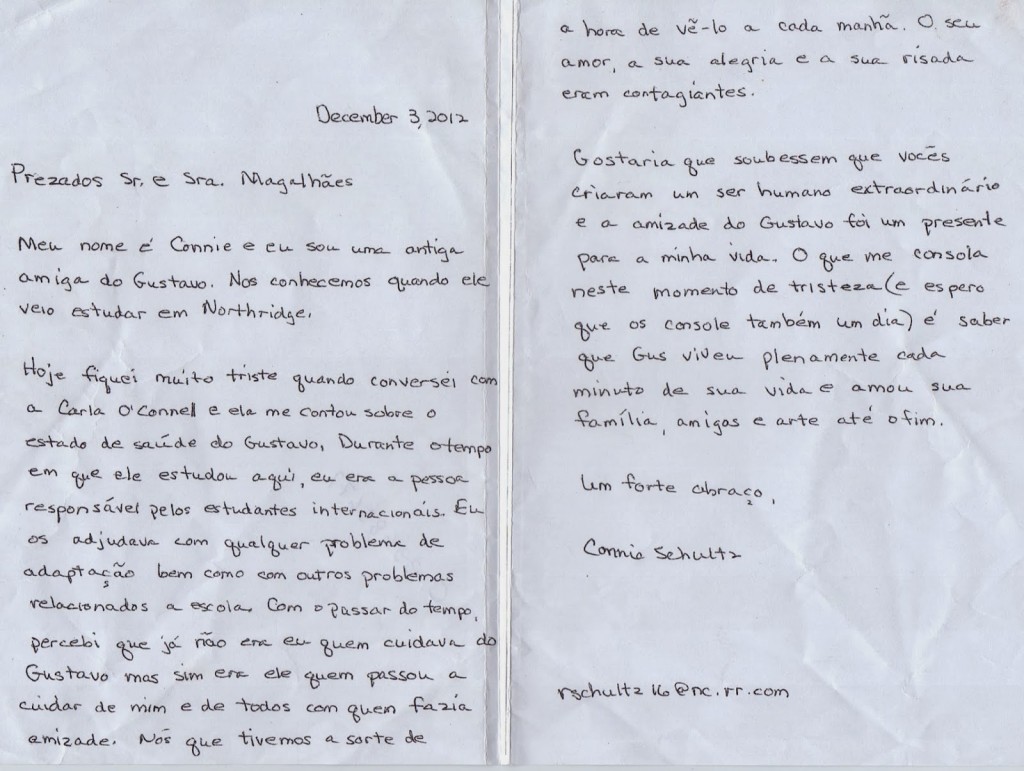 December 3, 2012
Prezados Sr. e Sra. Magalhães
Meu nome é Connie e eu sou uma antiga
amiga do Gustavo. Nos conhecemos quando ele
veio estudar em Northridge.
Hoje fiquei muito triste quando conversei com
a Carla O'Connel e ela me contou sobre o
estado de saúde do Gustavo. Durante o tempo
em que ele estudou aqui, eu era a pessoa
responsável pelos estudantes internacionais. Eu
os adjudava com qualquer problema de
adaptação bem como com outros problemas
relacionados a escola. Com o passar do tempo,
percebi que já não era eu quem cuidava do
Gustavo mas sim era ele quem passou a
cuidar de mim e de todos com quem fazia
amizade. Nós que tivemos a sorte de
a hora de vê-lo a cada manhã. O seu
amor, a sua alegria e a sua risada
eram contagiantes.
Gostaria que soubessem que vocês
criaram um ser humano extraordinário
e a amizade do Gustavo foi um presente
para a minha vida. O que me consola
neste momento de tristeza (e espero
que os console também um dia) é saber
que Gus viveu plenamente cada
minuto de sua vida e amou sua
família, amigos e arte até o fim.
Um forte abraço,
Connie Schultz
rschultz16@nc.rr.com